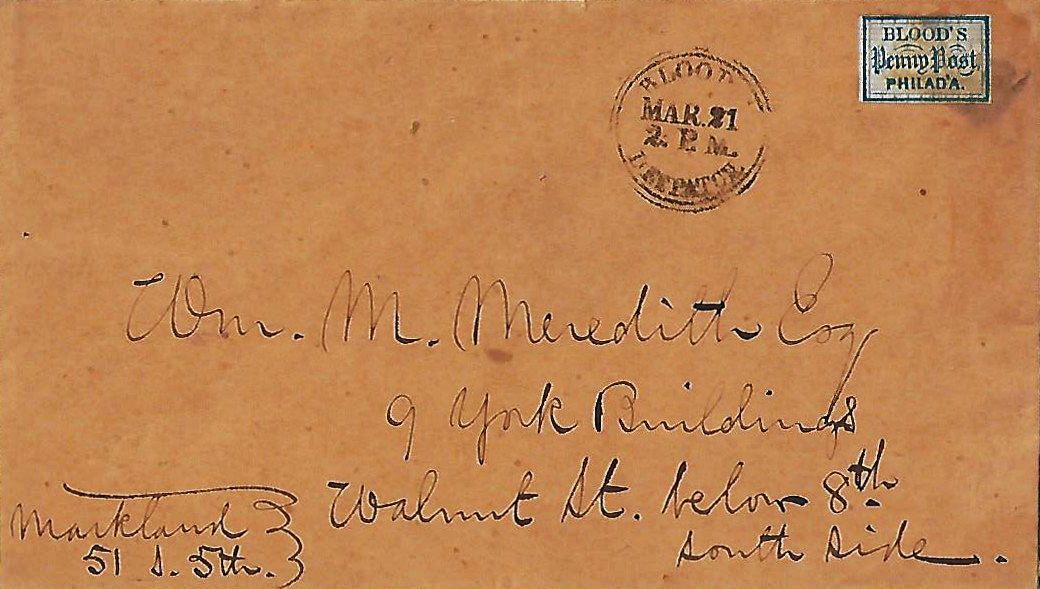 BLOOD'S
Penny Post
PHILAD'A.
BLOOD'S
MAR. 21
2. P. M.
DESPATCH
Wm. M. Meredith Esq
9 York Buildings
Walnut St. below 8th
south side.
Markland
51 S. 5th.